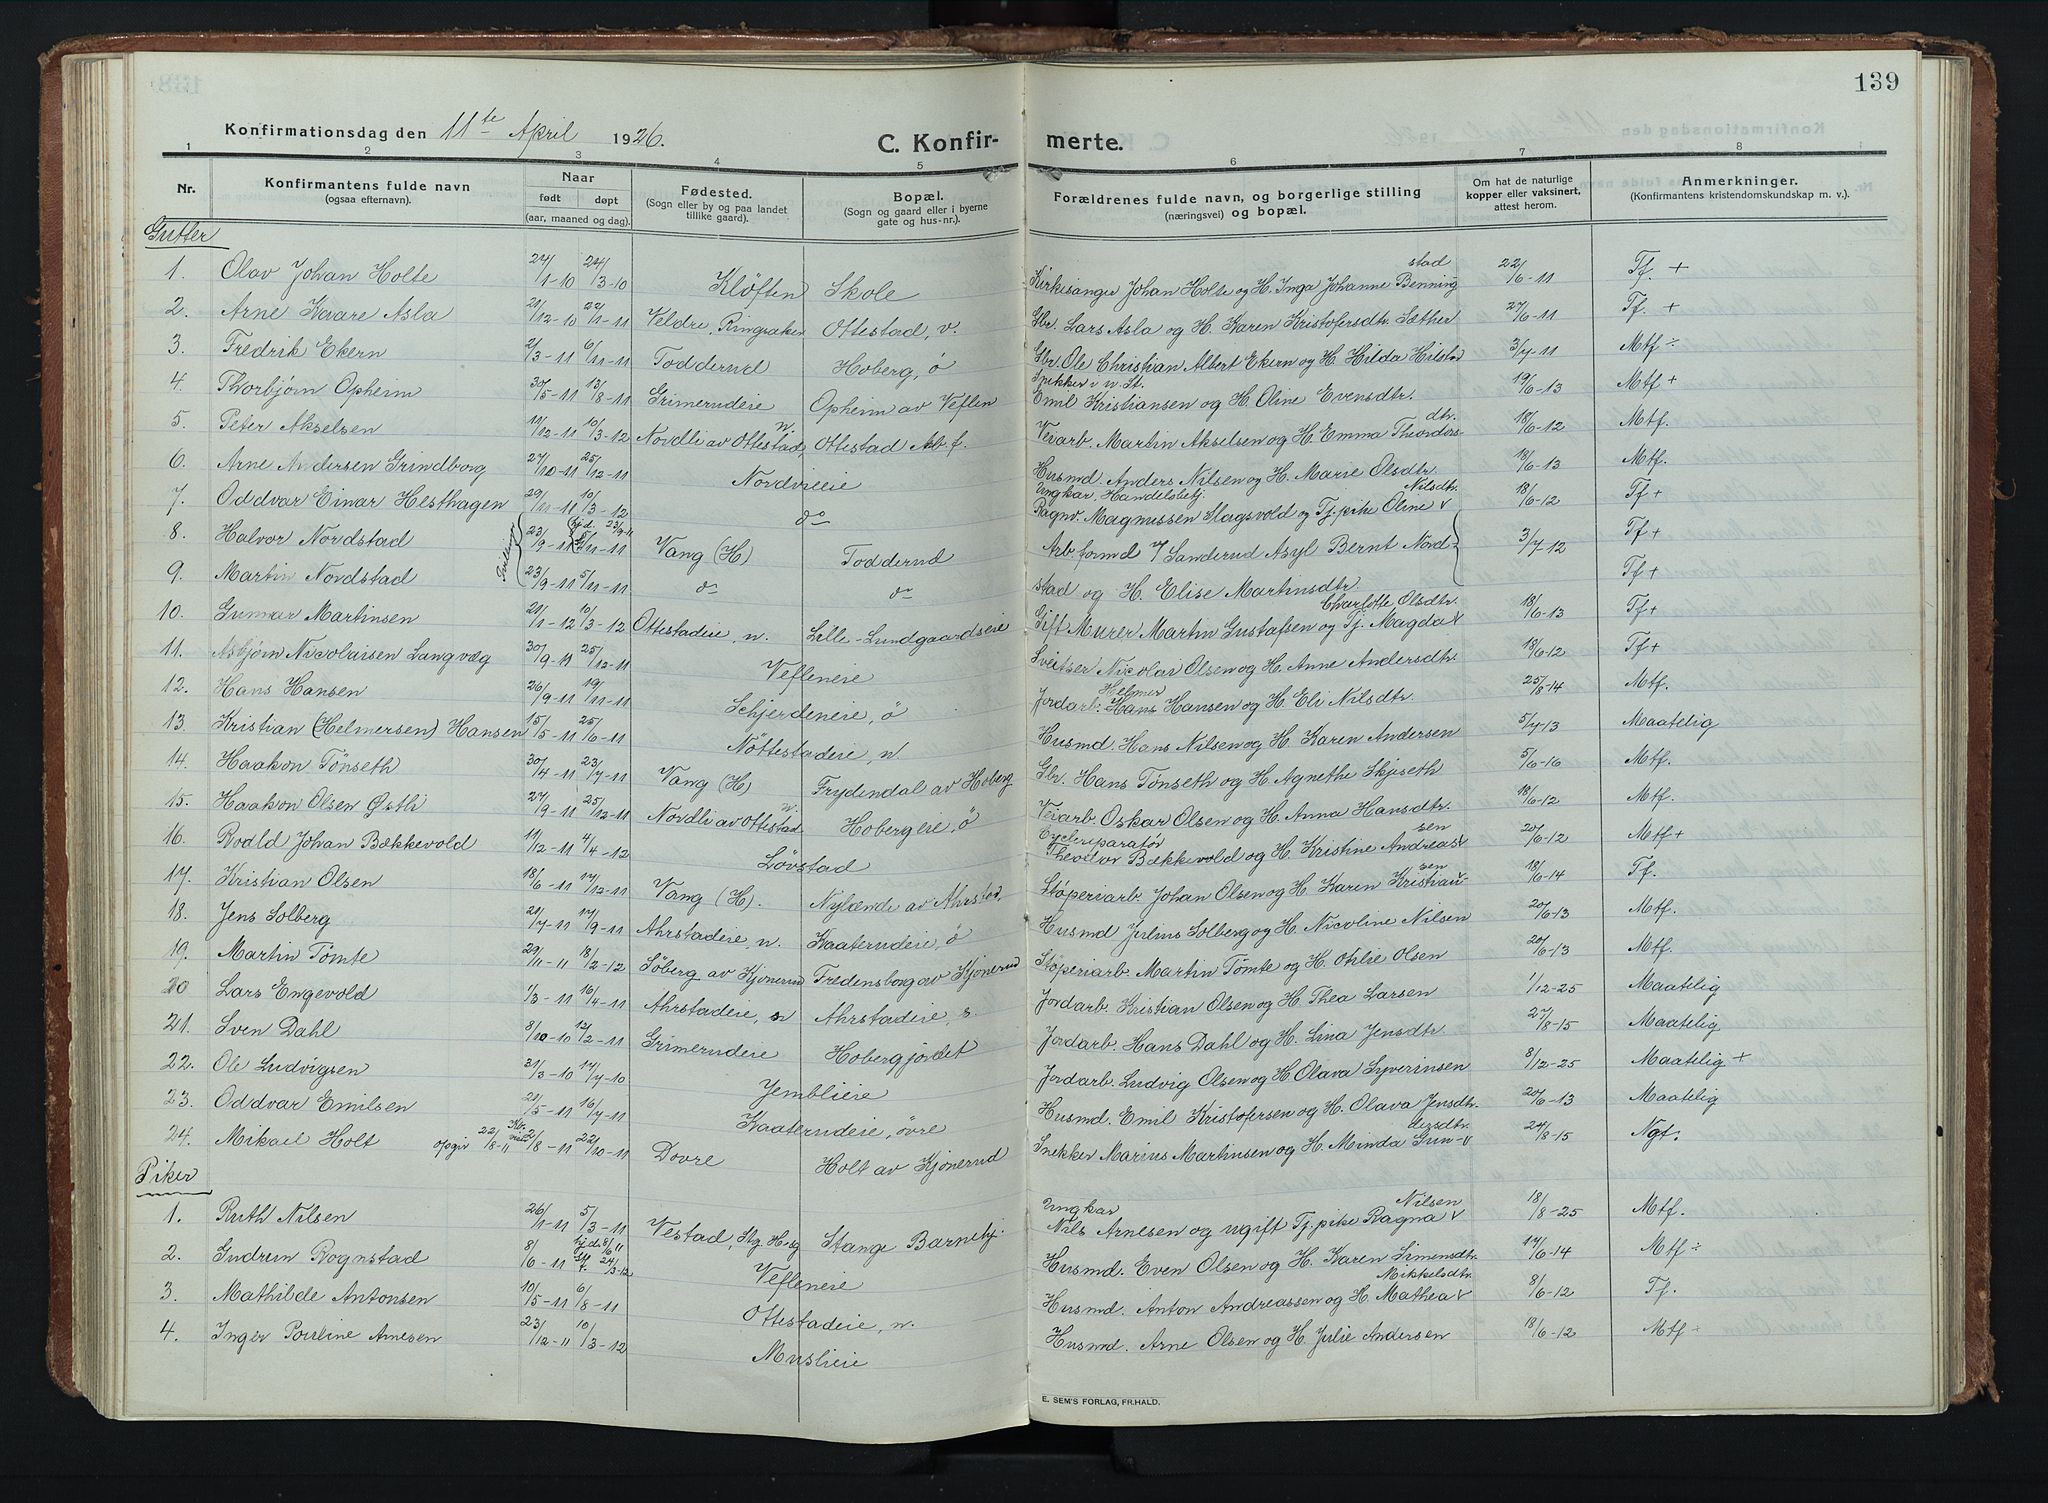 139
Konfirmationsdag den 11te April 1926.
C. Konfir- merte.
1 2 3 4 5 6 7 8
Nr. Konfirmantens fulde navn (ogsaa efternavn). Naar født døpt (aar, maaned og dag). Fødested. (Sogn eller by og paa landet tillike gaard). Bopæl. (Sogn og gaard eller i byerne gate og hus-nr.). Forældrenes fulde navn, og borgerlige stilling (næringsvei) og bopæl. Om hat de naturlige kopper eller vaksinert, attest herom. Anmerkninger. (Konfirmantens kristendomskundskap m. v.).
Gutter
1. Olav Johan Holte 24/1-10 24/3-10 Kløften Skole Kirkesanger Johan Holte og H. Inga Johanne Benningstad 22/6-11 Tf. +
2. Arne Kaare Asla 21/12-10 22/1-11 Veldre, Ringsaker Ottestad, v. Gbr. Lars Asla og H. Karen Kristofersdtr. Sæther 27/6-11 Tf. +
3. Fredrik Ekern 2/3-11 6/11-11 Todderud Hoberg, ö Gbr. Ole Christian Albert Ekern og H. Hilda Hilstad 3/7-11 Mtf ÷
4. Thorbjørn Opheim 30/5-11 13/8-11 Grimerudeie Opheim av Veflen Snikker v. n. St. Emil Kristiansen og H. Oline Evensdtr. 19/6-13 Mtf +
5. Peter Akselsen 11/12-11 10/3-12 Nordli av Ottestad, n. Ottestad Arb. f. Veiarb. Martin Akselsen og H. Emma Theodorsdtr. 18/6-12 Mtf.
6. Arne Andersen Grindborg 27/10-11 25/12-11 Nordvieie Husmd. Anders Nilsen og H. Marie Olsdtr. 18/6-13 Mtf.
7. Oddvar Einar Hesthagen 29/11-11 10/3-12 do Ungkar, Handelsbetj. Ragnv. Magnussen Slagsvold og Tj. pike Oline Nilsdtr. 18/6-12 Tf +
8. Halvor Nordstad Tvilling 23/9-11 hjd. 23/9-11 5/11-11 Vang (H) Todderud Arb. formd. v/ Sanderud Asyl Bernt Nord- 3/7-12 Tf +
9. Martin Nordstad 23/9-11 5/11-11 do do stad og H. Elise Martinsdtr. Tf +
10. Gunnar Martinsen 21/1-12 10/3-12 Ottestadeie, n. Lille-Lundgaardseie Gift Murer Martin Gustafsen og Tj. Magda Charlotte Olsdtr. 18/6-13 Tf +
11. Asbjørn Nicolaisen Langvæg 30/9-11 25/12-11 Vefleneie Sveitser Nicolai Olsen og H. Anne Andersdtr. 18/6-12 Tf +
12. Hans Hansen 26/9-11 19/11-11 Schjerdeneie, ö Jordarb. Hans Helmer Hansen og H. Eli Nilsdtr. 25/8-14 Mtf.
13. Kristian (Helmersen) Hansen 15/5-11 25/6-11 Nöttestadeie, n. Husmd. Hans Nilsen og H. Karen Andersen 5/7-13 Maatelig
14. Haakon Tönseth 30/4-11 23/7-11 Vang (H) Frydendal av Hoberg Gbr. Hans Tönseth og H. Agnethe Skjeseth 5/6-16 Mtf.
15. Haakon Olsen Østli 24/9-11 25/12-11 Nordli av Ottestad n. Hobergeie, ö Veiarb. Oskar Olsen og H. Anna Hansdtr. 18/6-12 Mtf.
16. Roald Johan Bækkevold 11/12-11 4/4-12 Lövstad Cyclereparatør Theodor Bækkevold og H. Kristine Andreassen 20/6-12 Mtf +
17. Kristian Olsen 18/6-11 17/12-11 Vang (H). Nylænde av Ahrstad, Støperiarb. Johan Olsen og H. Karen Kristiansen 18/6-14 Tf.
18. Jens Solberg 21/7-11 17/9-11 Ahrstadeie, n. Kaaterudeie, ö Husmd Julius Solberg og H. Nicoline Nilsen 20/6-13 Mtf.
19. Martin Tömte 29/11-11 18/2-12 Söberg av Kjonerud Fredensborg av Kjonerud Støperiarb. Martin Tömte og H. Otilie Olsen 20/6-13 Mtf.
20 Lars Engevold 1/3-11 16/4-11 Ahrstadeie, s. Ahrstadeie, s. Jordarb. Kristian Olsen og H. Thea Larsen 1/12-25 Maatelig
21. Sven Dahl 8/10-10 12/2-11 Grimerudeie Hobergjordet Jordarb. Hans Dahl og H. Lina Jensdtr. 27/8-15 Maatelig
22. Ole Ludvigsen 31/3-10 17/7-10 Jemblieie Jordarb. Ludvig Olsen og H. Olava Syverinsen 8/12-25 Maatelig +
23. Oddvar Emilsen 21/5-11 16/7-11 Kaaterudeie, övre Husmd. Emil Kristofersen og H. Olava Jensdtr. 20/6-13 Maatelig
24. Mikael Holt opgir 22/8-11 2/8-11 22/10-11 Dovre Holt av Kjonerud Snekker Marius Martinsen og H. Minda 24/8-15 Ngt.
Piker
1. Ruth Nilsen 26/1-11 5/3-11 Vestad, Stg. H-sg Stange Barnehj. Ungkar Nils Arnesen og ugift Tj. pike Ragna Nilsen 18/8-25 Mtf.
2. Gudrun Rognstad 8/6-11 hjd. 8/6-11 24/3-12 Vefleneie Husmd. Even Olsen og H. Karen Simensdtr. 17/6-14 Mtf ÷
3. Mathilde Antonsen 10/5-11 6/8-11 Ottestadeie, n. Husmd. Anton Andreassen og H. Mathea Mikkelsdtr. 8/6-12 Tf.
4. Inger Pouline Arnesen 23/12-11 10/3-12 Muslieie Husmd. Arne Olsen og H. Julie Andersen 18/6-12 Mtf ÷
E. SEM'S FORLAG, FR.HALD.